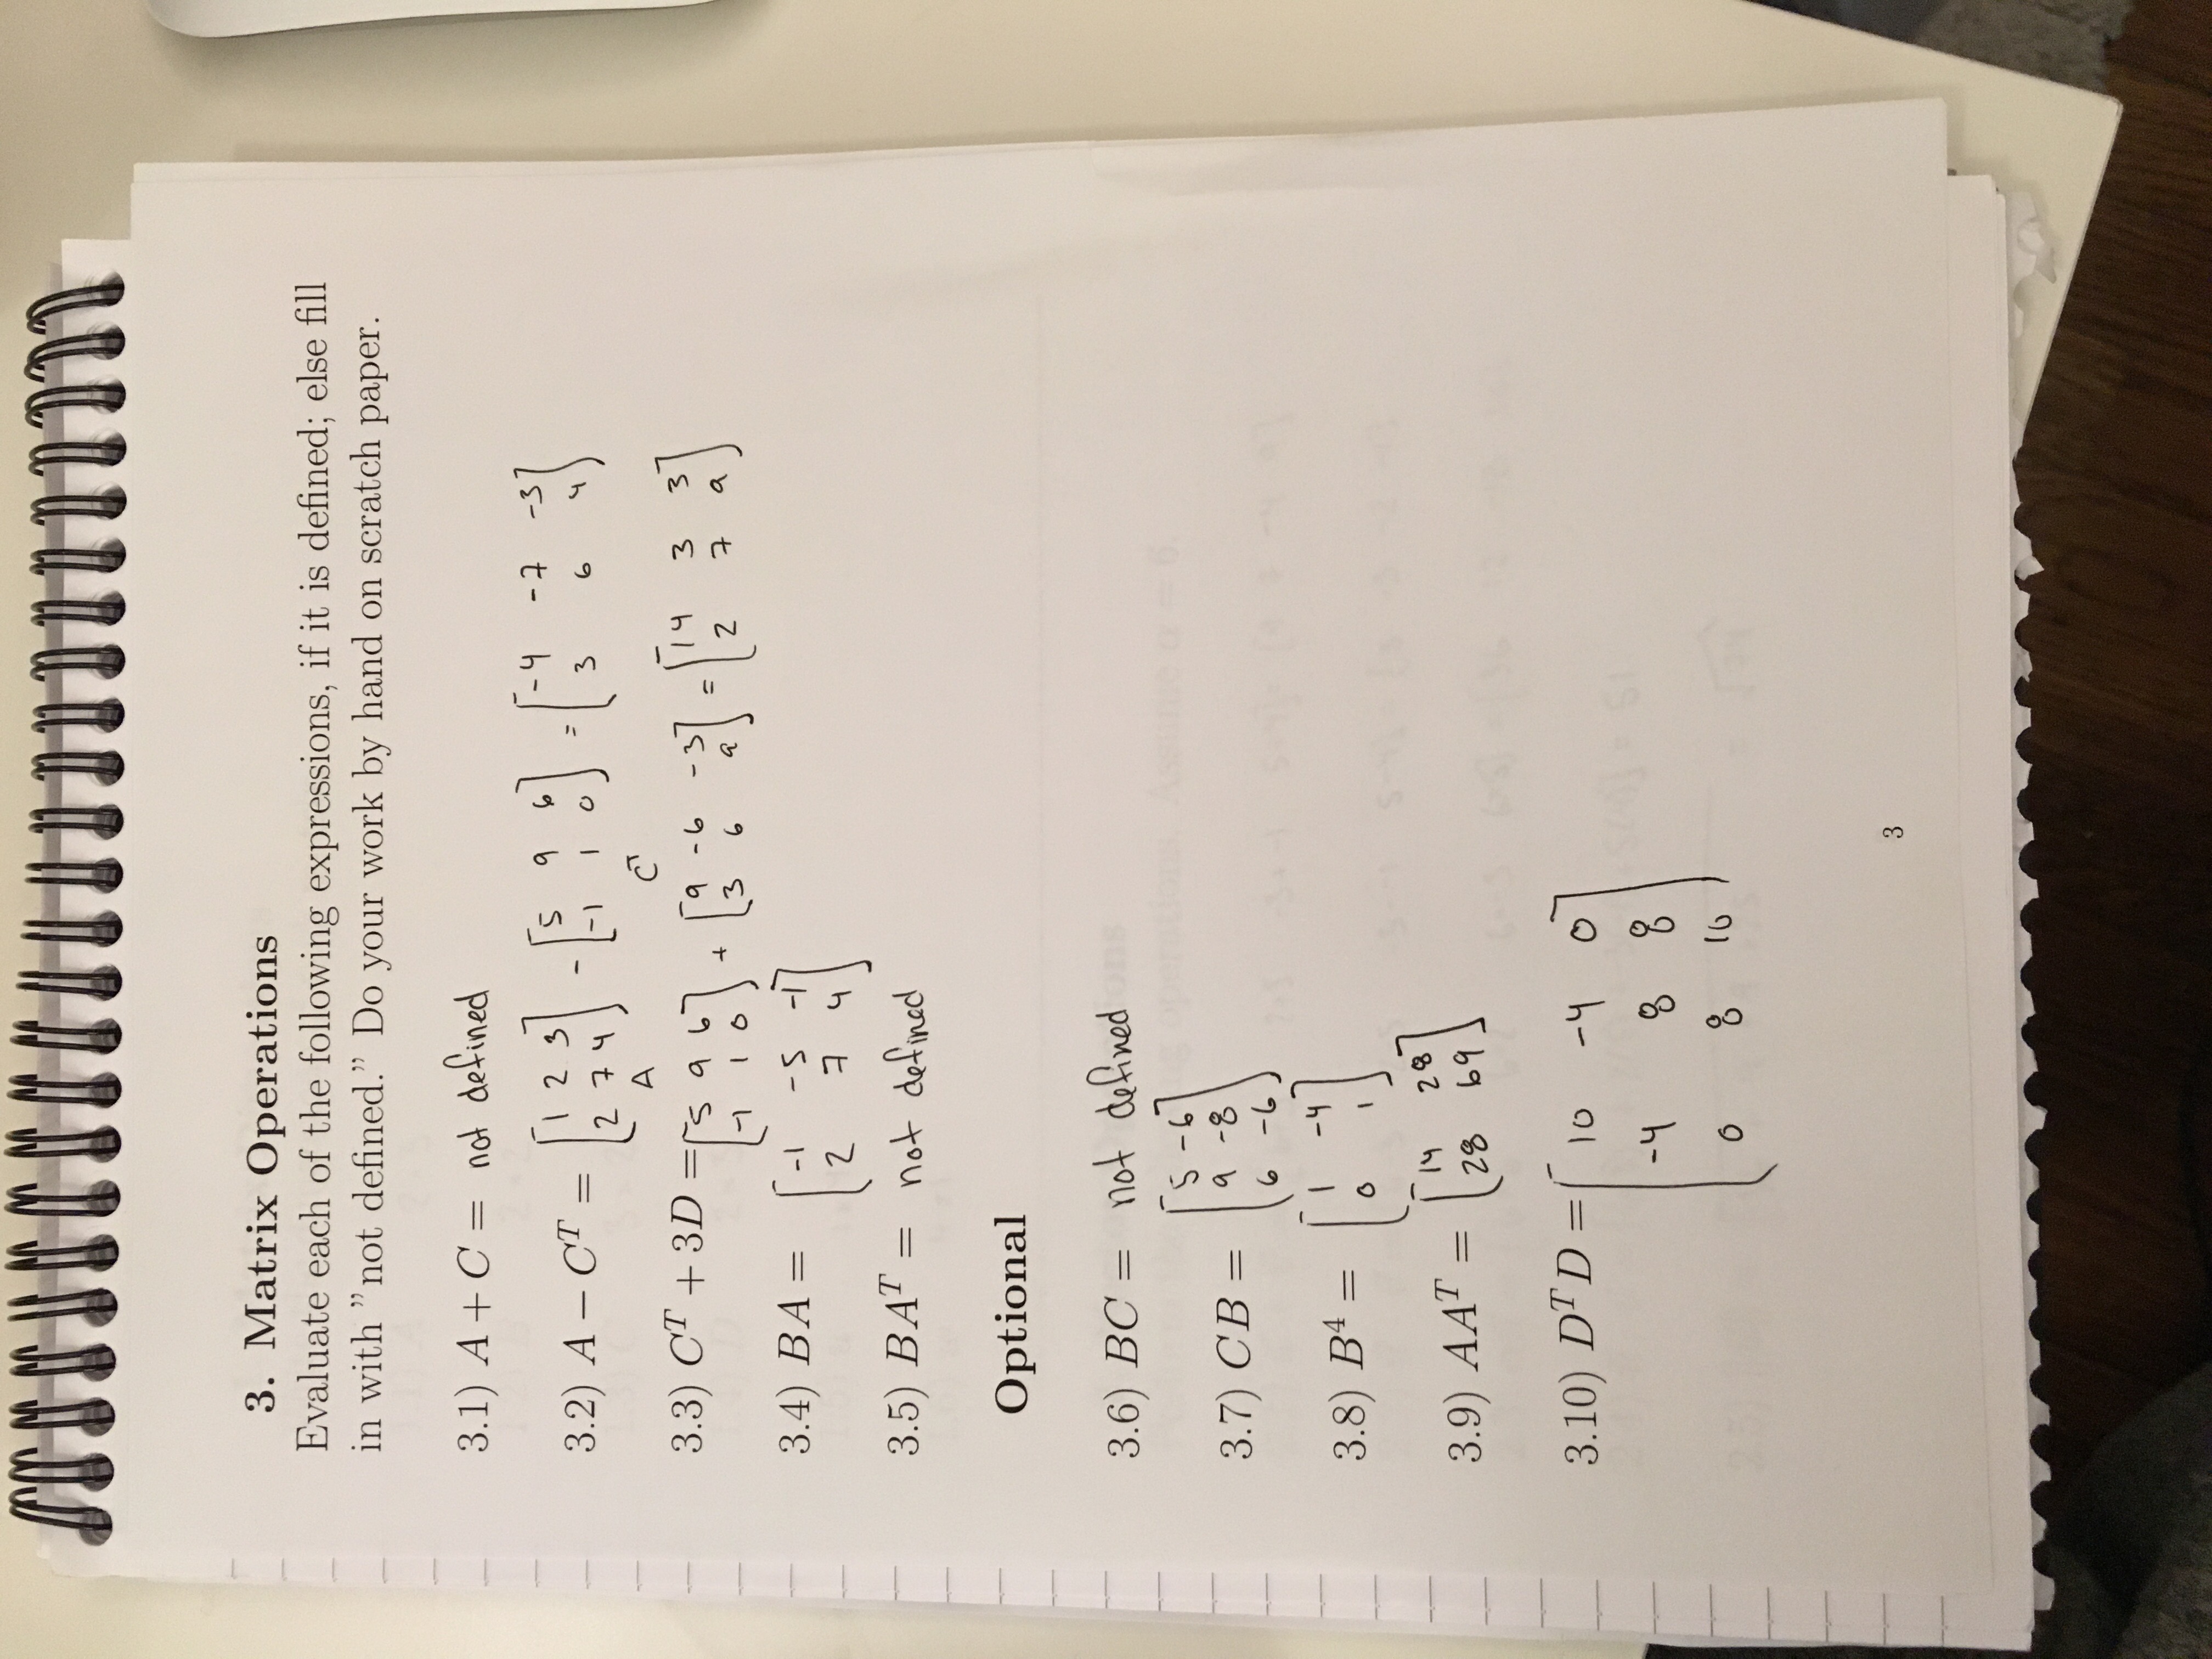 3. Matrix Operations
Evaluate each of the following expressions, if it is defined; else fill
in with ”not defined.” Do your work by hand on scratch paper.
3.1) A + C = not defined
3.2) A − Cᵀ = [1 2 3; 2 7 4] - [5 9 6; -1 1 0] = [-4 -7 -3; 3 6 4]
A Cᵀ
3.3) Cᵀ + 3D = [5 9 6; -1 1 0] + [9 -6 -3; 3 6 9] = [14 3 3; 2 7 9]
3.4) BA = [-1 -5 -1; 2 7 4]
3.5) BAᵀ = not defined
Optional
3.6) BC = not defined
3.7) CB = [5 -6; 9 -8; 6 -6]
3.8) B⁴ = [1 -4; 0 1]
3.9) AAᵀ = [14 28; 28 69]
3.10) DᵀD = [10 -4 0; -4 8 8; 0 8 10]
3